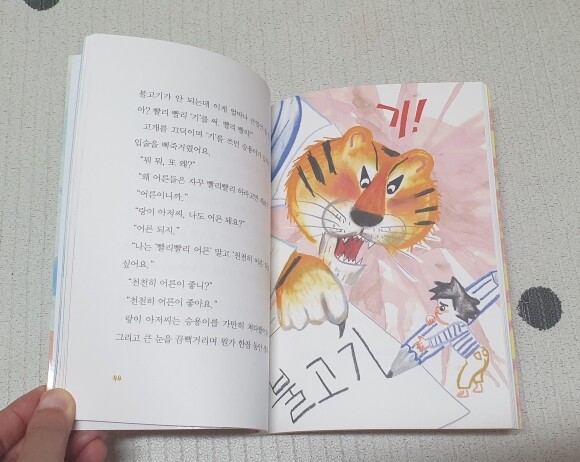 불고기가 안 되는데 이게 얼마나
아? 빨리 빨리 '기'를 써. 빨리 빨리!"
고개를 끄덕이며 '기'를 쓰던 승용이가
입술을 삐죽거렸어요.
"뭐 뭐, 또 왜?"
"왜 어른들은 자꾸 빨리빨리 하라고만
"어른이니까."
"랑이 아저씨, 나도 어른 돼요?"
"어른 되지."
"나는 '빨리빨리 어른' 말고 '천천히
싶어요."
"천천히 어른이 좋니?"
"천천히 어른이 좋아요."
랑이 아저씨는 승용이를 가만히
그리고 큰 눈을 끔뻑거리며 뭔가 한참 동안
기!
불고기